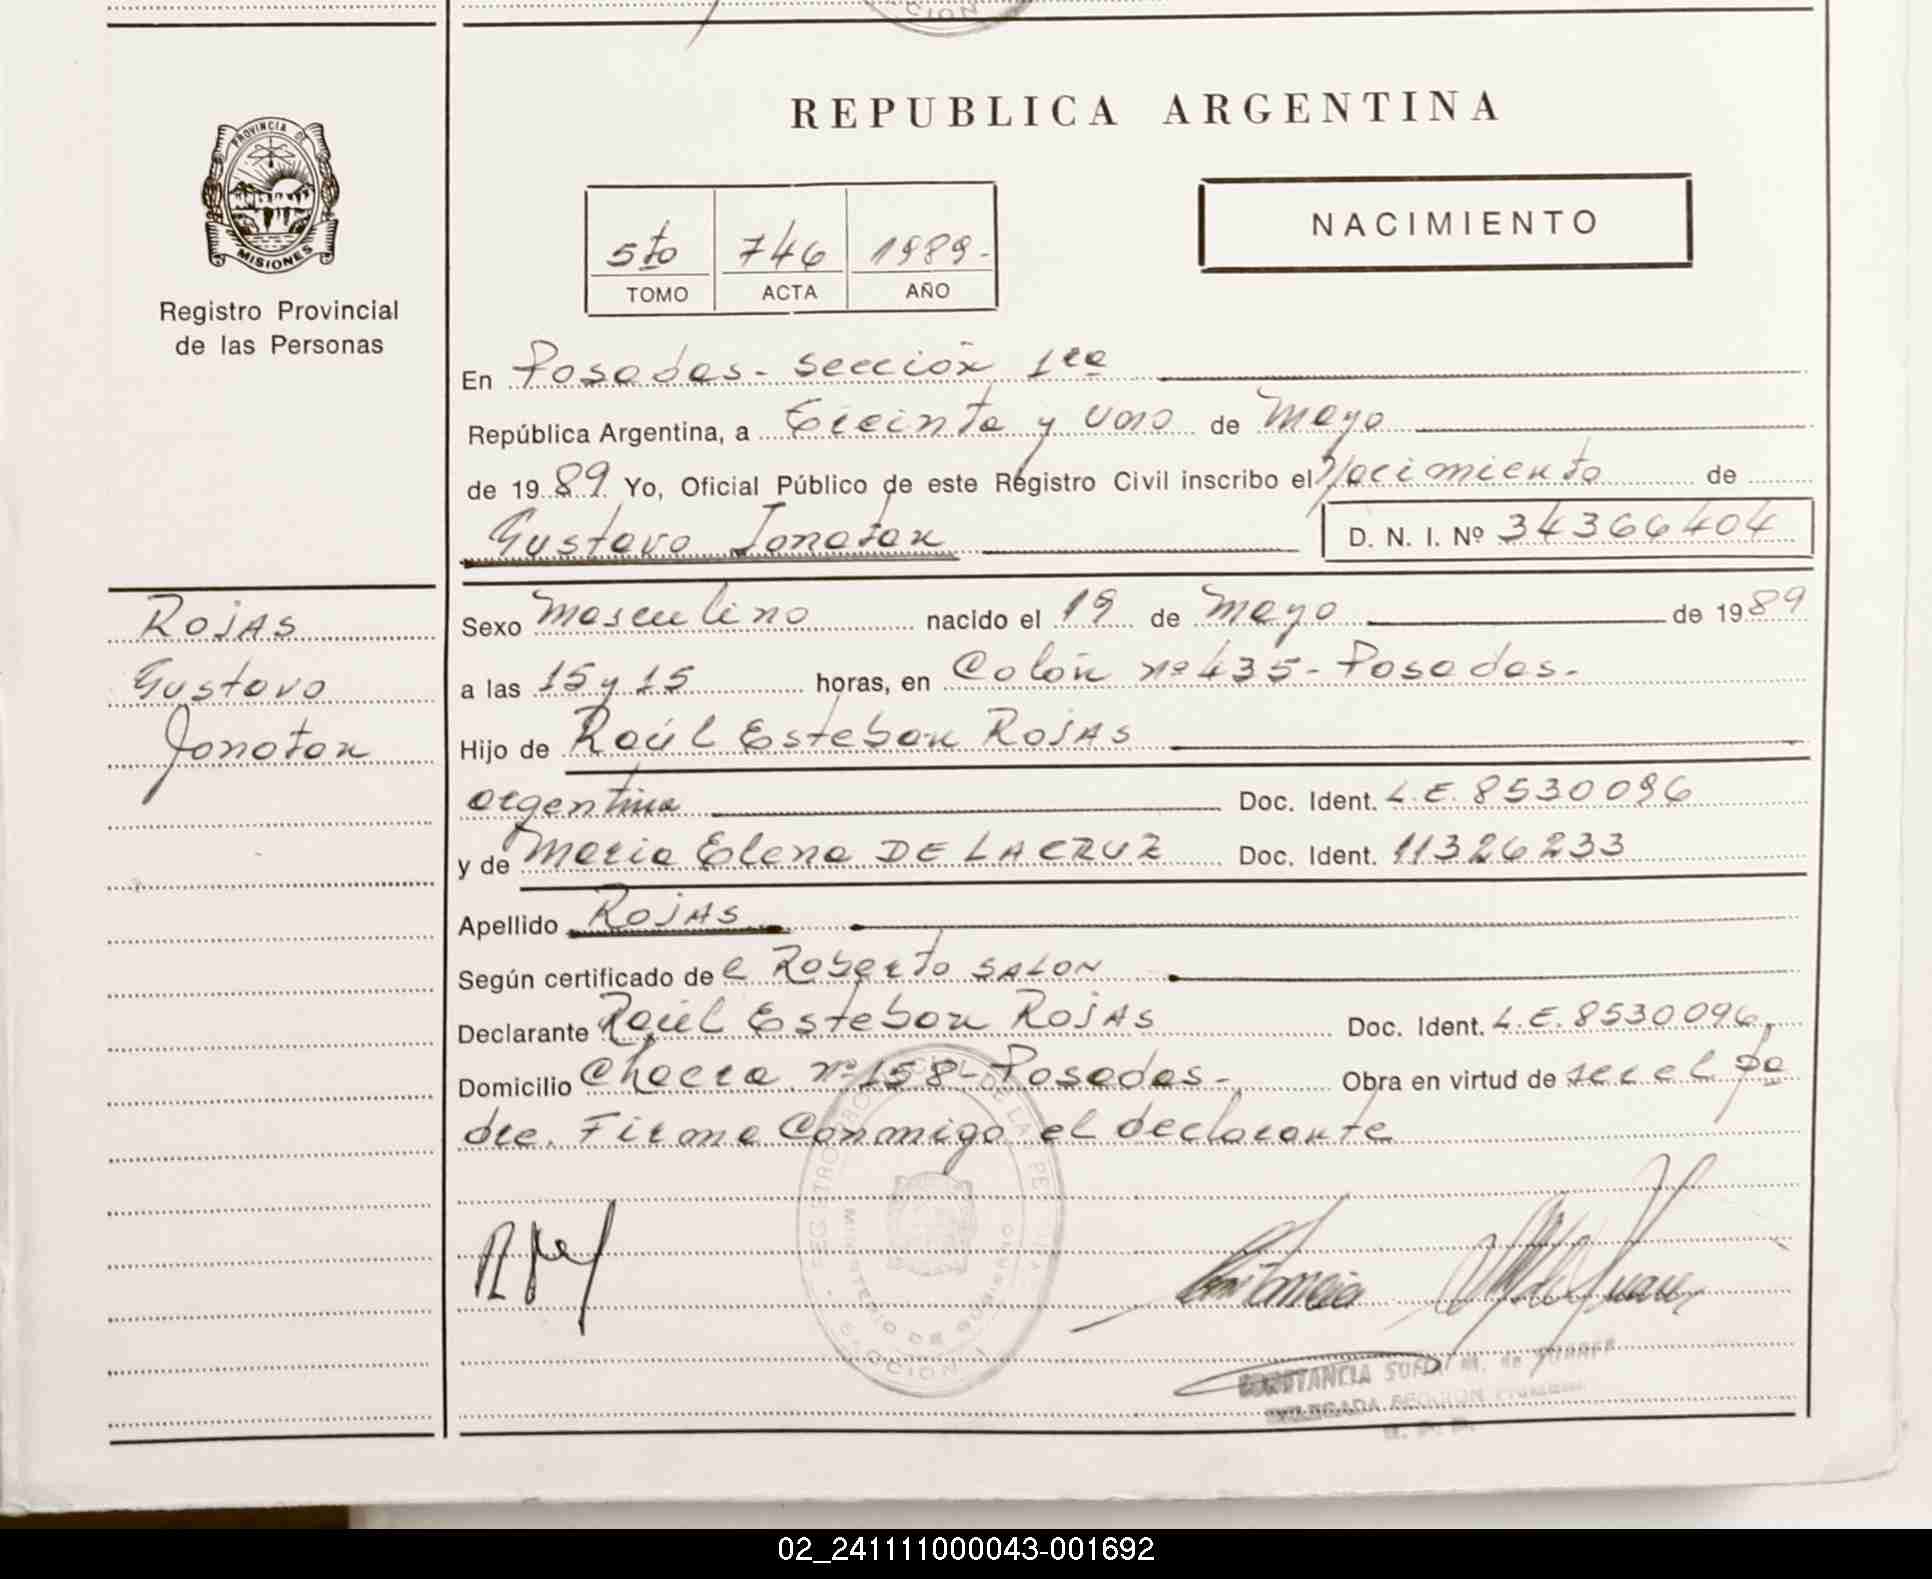 CION
REPUBLICA ARGENTINA
PROVINCIA DE
MISIONES
Registro Provincial
de las Personas
5to 746 1989-
TOMO ACTA AÑO
NACIMIENTO
En Posadas - sección 1ra
República Argentina, a treinta y uno de Mayo
de 1989 Yo, Oficial Público de este Régistro Civil inscribo el Nacimiento de
Gustavo Jonatan D. N. I. Nº 34366404
ROJAS
Gustavo
Jonatan
Sexo Masculino nacido el 19 de Mayo de 1989
a las 15 y 15 horas, en Colón nº 435 - Posadas.
Hijo de Raúl Esteban ROJAS
argentina Doc. Ident. L.E. 8530096
y de María Elena DE LA CRUZ Doc. Ident. 11326233
Apellido ROJAS
Según certificado de Roberto SALON
Declarante Raúl Esteban ROJAS Doc. Ident. L.E. 8530096
Domicilio Chacra nº 158 - Posadas - Obra en virtud de ser el pa
dre. Firma Conmigo el declarante
MINISTERIO DE GOBIERNO
SECCION 1
CONSTANCIA
DELEGADA SECCION
02_241111000043-001692